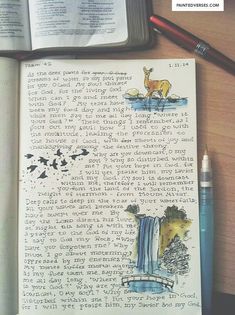 PAINTEDVERSES.COM
Psalm 42
1.11.14
As the deer pants for
streams of water, so my soul pants
for you, O God. My soul thirsts for
God for the living God
When can I go and meet
with God? My tears have
been my food day and night,
while men say to me all day long "where is
your God?" These things I remember, as I
pour out my soul: how I used to go with
the multitude, leading the procession to
the house of God, with shouts of joy and
thanksgiving among the festive throng.
Why are you downcast, O my
soul? Why so disturbed within
me? Put your hope in God, for
I will yet praise him, my Savior
and my God. My soul is downcast
within me; therefore I will remember
you from the land of the Jordan, the
heights of Hermon - from Mount Mizar.
Deep calls to deep in the roar of your waterfalls,
all your waves and breakers
have swept over me. By
day the Lord directs his love,
at night his song is with me
a prayer to the God of my life.
I say to God my Rock, "Why
have you forgotten me? Why
must I go about mourning,
oppressed by my enemies?"
My bones suffer mortal agony
as my foes taunt me, saying
to me all day long "Where
is your God?" Why are you
downcast, O my soul? Why so
disturbed within me? Put your hope in God,
for I will yet praise him, my Savior and my God